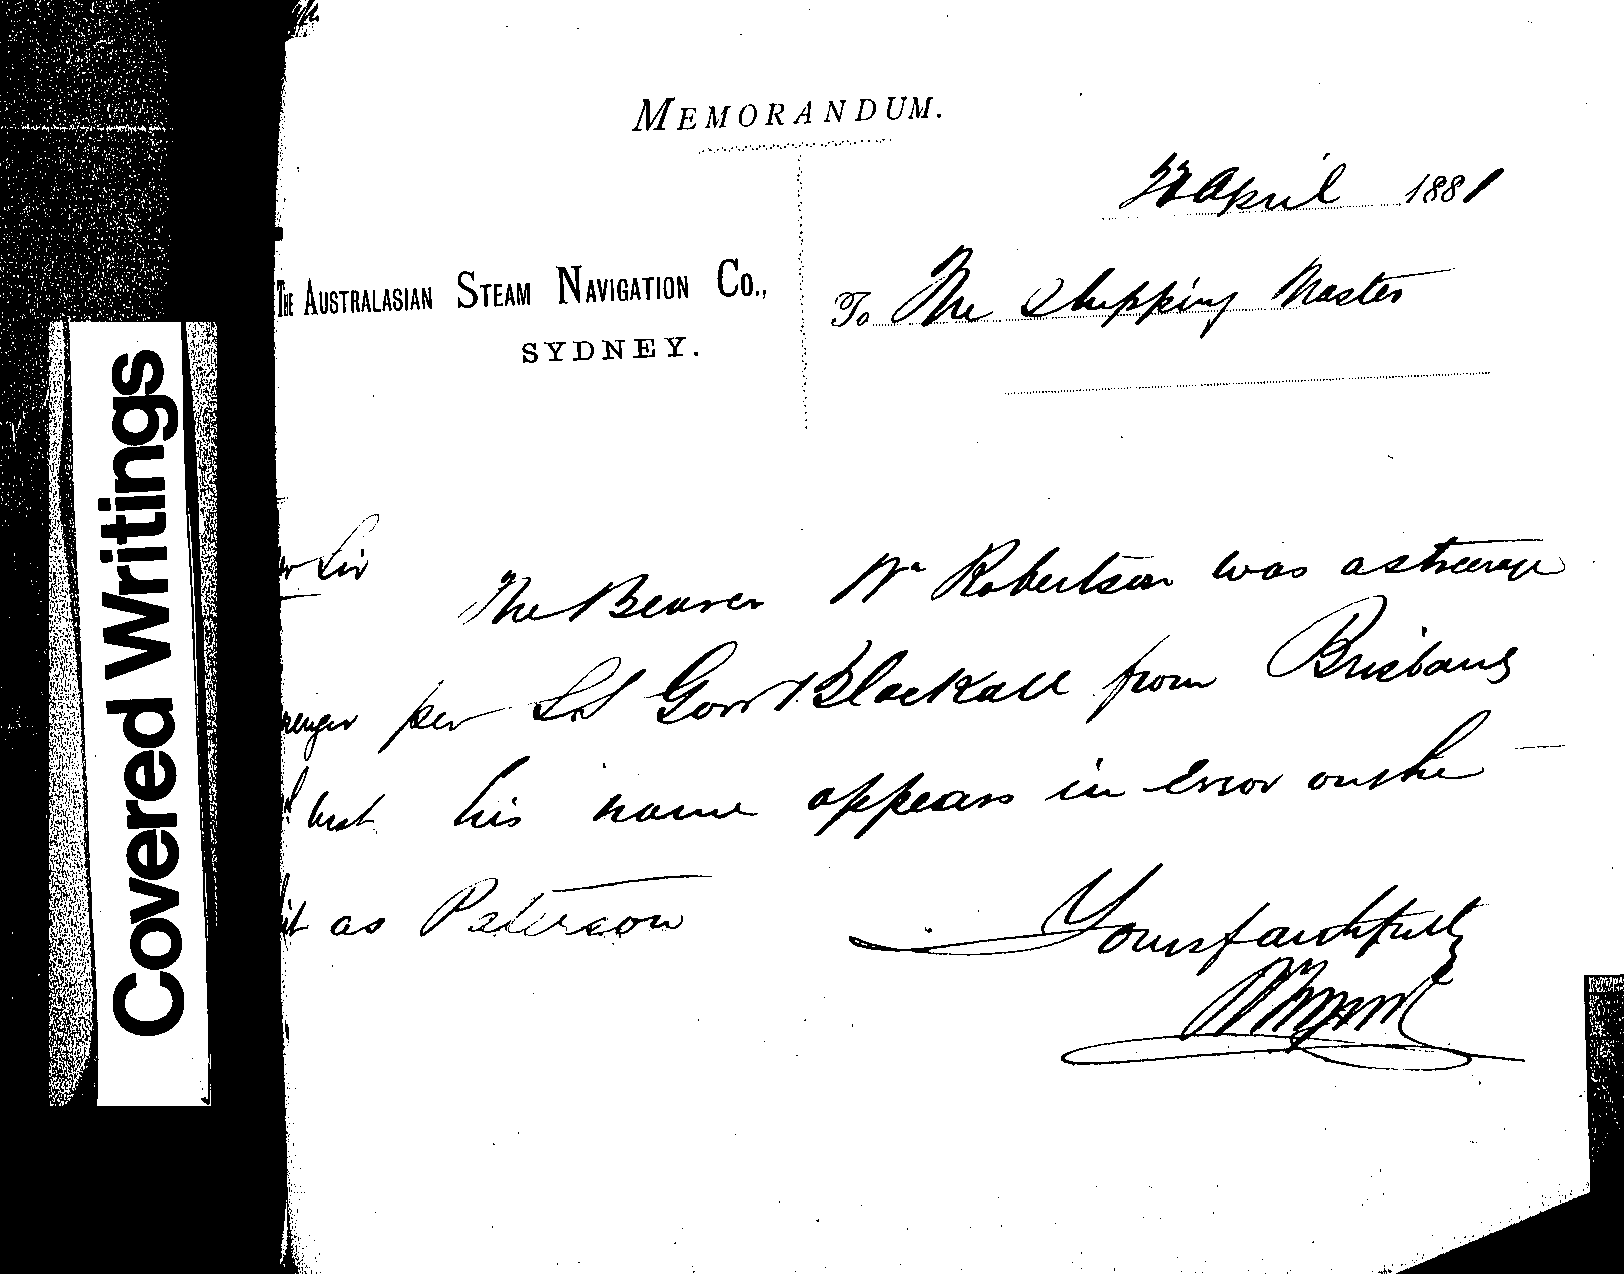 MEMORANDUM.
22 April 1881
THE AUSTRALASIAN STEAM NAVIGATION CO.,
SYDNEY.
To The Shipping Master
Sir
The Bearer Wm Robertson was a steerage
per SS Govr Blackall from Brisbane
but his name appears in error on the
as Paterson
Yours faithfully
Covered Writings